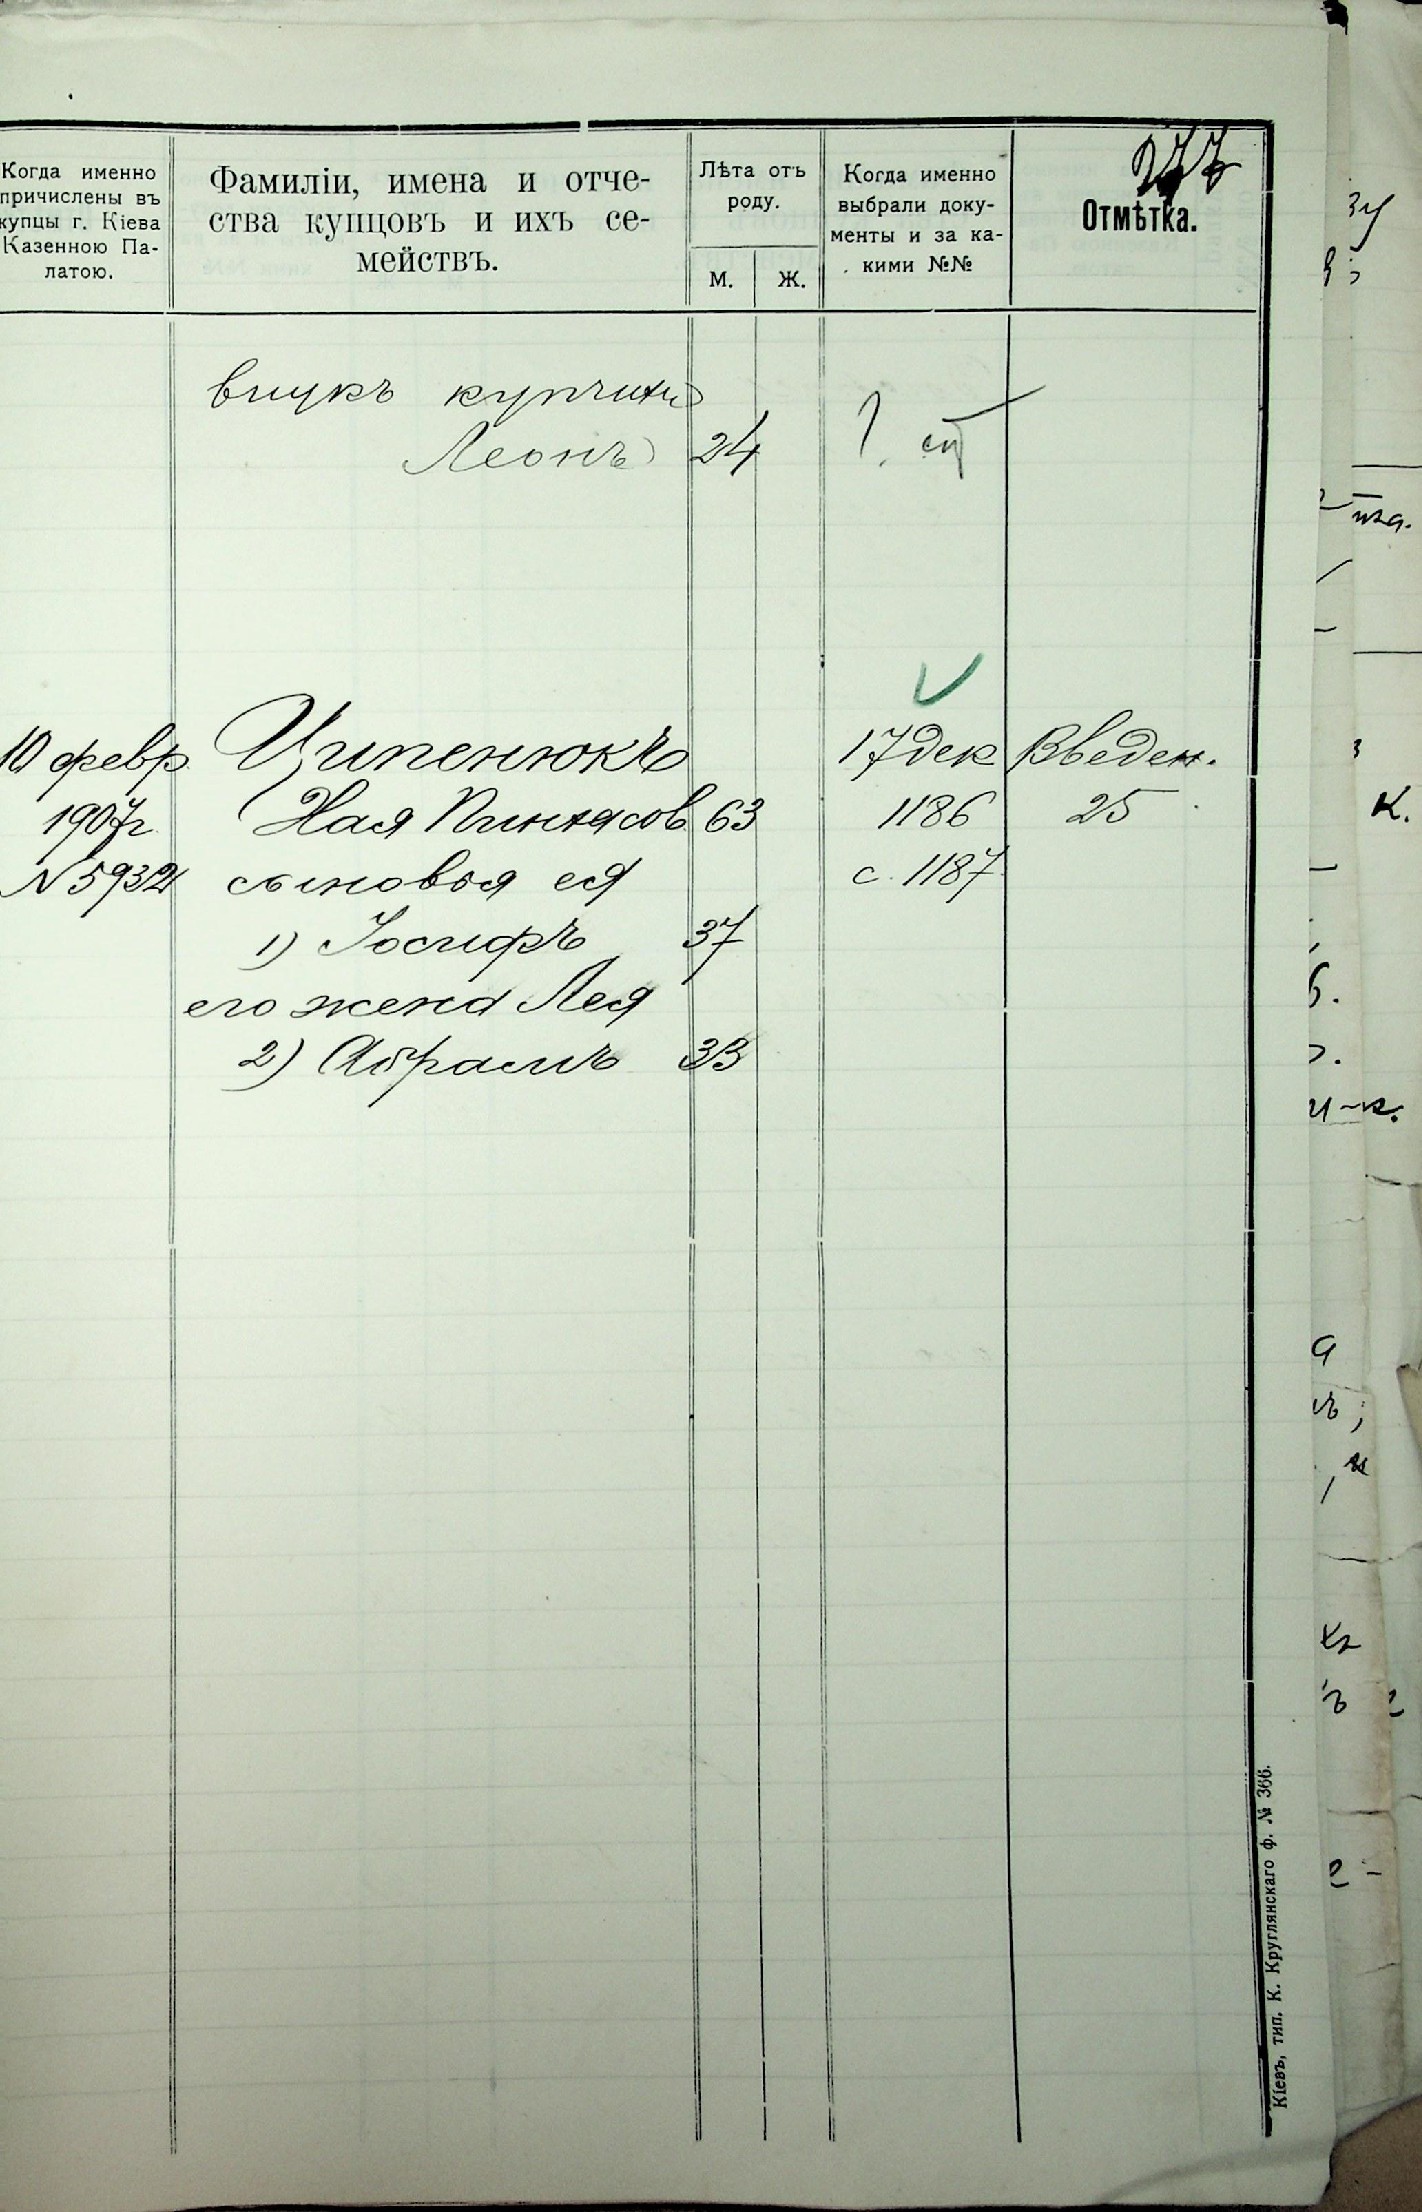 277
Когда именно
причислены въ
купцы г. Кіева
Казенною Па-
латою.
Фамиліи, имена и отче-
ства купцовъ и ихъ се-
мействъ.
Лѣта отъ
роду.
М. Ж.
Когда именно
выбрали доку-
менты и за ка-
кими №№
Отмѣтка.
внукъ купчихи
Леонъ 24
10 февр. Ципенюкъ 17 дек Введен.
1907 г. Хая Пинхасов 63 1186 25
№ 5932 сыновья ея с. 1187
1) Іосифъ 37
его жена Лея
2) Абрамъ 33
Кіевъ, тип. К. Круглянскаго ф. № 366.